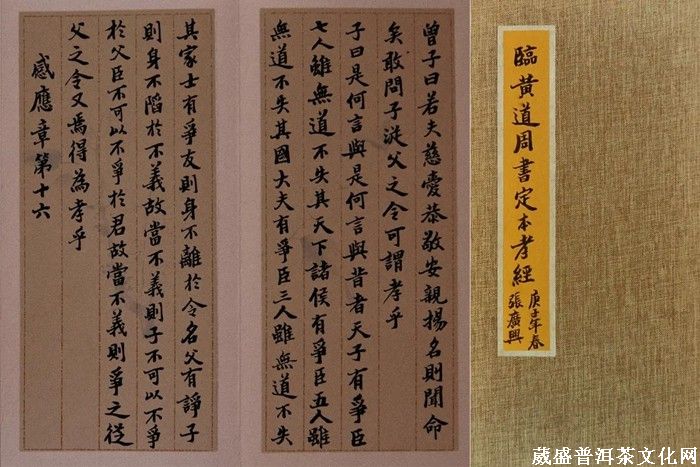 臨黃道周書定本孝經
庚子年春
張廣興
曾子曰若夫慈愛恭敬安親揚名則聞命
矣敢問子從父之令可謂孝乎
子曰是何言與是何言與昔者天子有爭臣
七人雖無道不失其天下諸侯有爭臣五人雖
無道不失其國大夫有爭臣三人雖無道不失
其家士有爭友則身不離於令名父有諍子
則身不陷於不義故當不義則子不可以不爭
於父臣不可以不爭於君故當不義則爭之從
父之令又焉得為孝乎
感應章第十六
葳盛普洱茶文化网